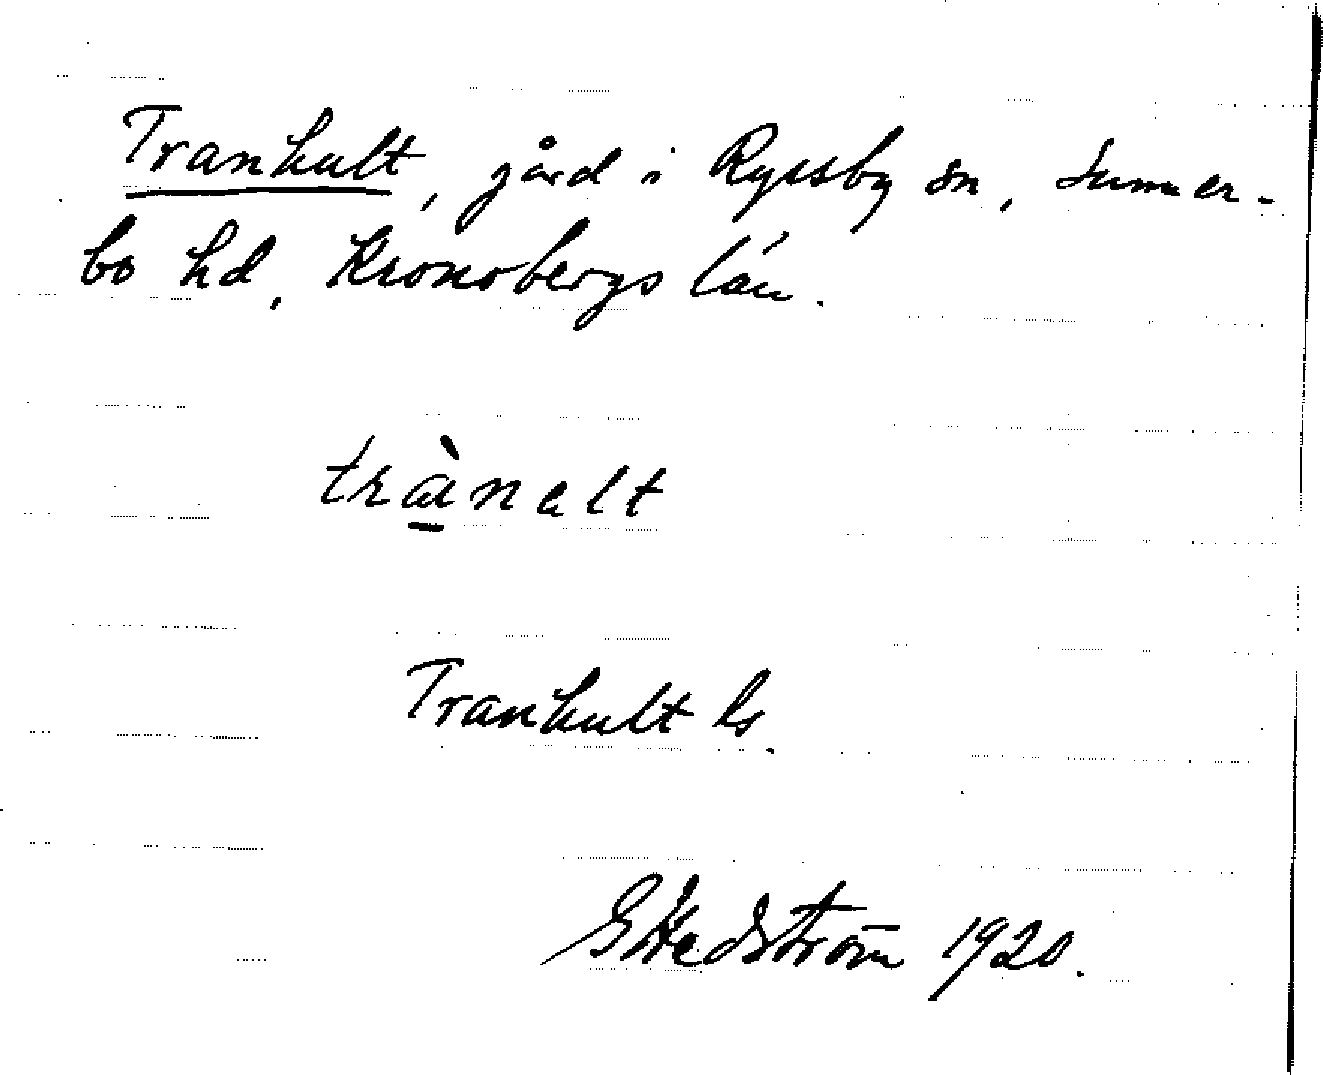 Tranhult, gård i Ryssby sn, Sunner-
bo hd, Kronobergs län.
trànelt
Tranhult ks.
G Hedström 1920.